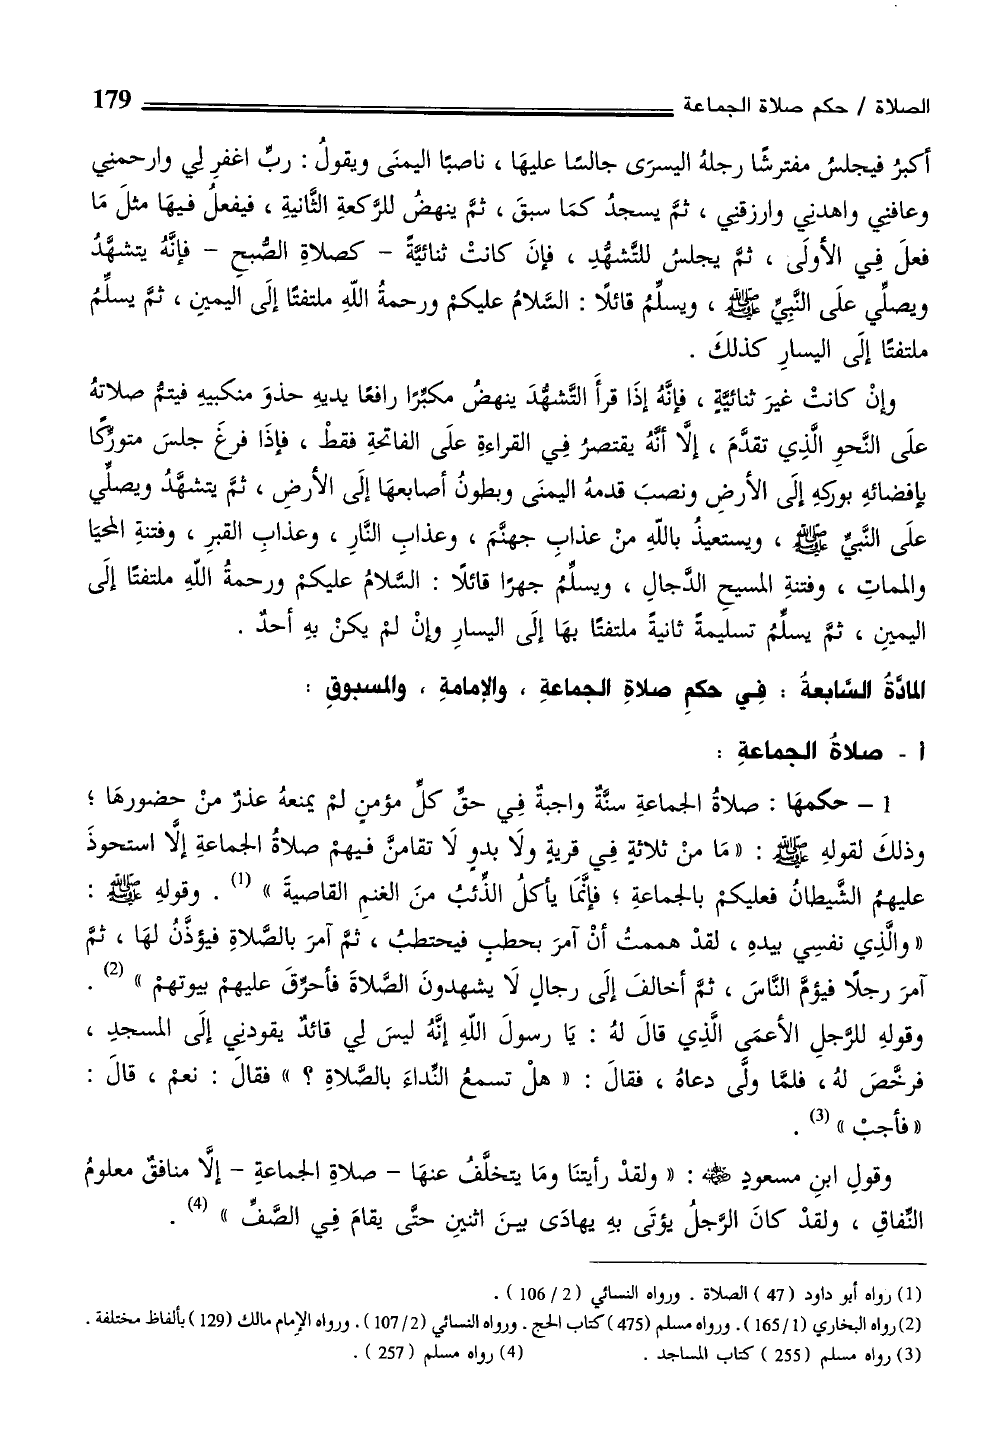 الصلاة / حكم صلاة الجماعة 179
أكبرُ فيجلسُ مفترشًا رجلهُ اليسرَى جالسًا عليهَا ، ناصبًا اليمنَى ويقولُ : ربِّ اغفرِ لِي وارحمنِي
وعافنِي واهدنِي وارزقنِي ، ثمَّ يسجدُ كمَا سبقَ ، ثمَّ ينهضُ للرَّكعةِ الثَّانيةِ ، فيفعلُ فيهَا مثلَ مَا
فعلَ فِي الأولَى ، ثمَّ يجلسُ للتَّشهُّدِ ، فإنَ كانتْ ثنائيَّةً – كصلاةِ الصُّبحِ – فإنَّهُ يتشهَّدُ
ويصلِّي علَى النَّبيِّ ﷺ ، ويسلِّمُ قائلًا : السَّلامُ عليكمْ ورحمةُ اللَّهِ ملتفتًا إلَى اليمينِ ، ثمَّ يسلِّمُ
ملتفتًا إلَى اليسارِ كذلكَ .
وإنْ كانتْ غيرَ ثنائيَّةٍ ، فإنَّهُ إذَا قرأَ التَّشهُّدَ ينهضُ مكبِّرًا رافعًا يديهِ حذوَ منكبيهِ فيتمُّ صلاتهُ
علَى النَّحوِ الَّذِي تقدَّمَ ، إلَّا أنَّهُ يقتصرُ فِي القراءةِ علَى الفاتحةِ فقطْ ، فإذَا فرغَ جلسَ متورِّكًا
بإفضائهِ بوركهِ إلَى الأرضِ ونصبَ قدمهُ اليمنَى وبطونُ أصابعهَا إلَى الأرضِ ، ثمَّ يتشهَّدُ ويصلِّي
علَى النَّبيِّ ﷺ ، ويستعيذُ باللَّهِ منْ عذابِ جهنَّمَ ، وعذابِ النَّارِ ، وعذابِ القبرِ ، وفتنةِ المحيَا
والمماتِ ، وفتنةِ المسيحِ الدَّجالِ ، ويسلِّمُ جهرًا قائلًا : السَّلامُ عليكمْ ورحمةُ اللَّهِ ملتفتًا إلَى
اليمينِ ، ثمَّ يسلِّمُ تسليمةً ثانيةً ملتفتًا بهَا إلَى اليسارِ وإنْ لمْ يكنْ بهِ أحدٌ .
المادَّةُ السَّابعةُ : فِي حكمِ صلاةِ الجماعةِ ، والإمامةِ ، والمسبوقِ :
أ - صلاةُ الجماعةِ :
1 – حكمهَا : صلاةُ الجماعةِ سنَّةٌ واجبةٌ فِي حقِّ كلِّ مؤمنٍ لمْ يمنعهُ عذرٌ منْ حضورهَا ؛
وذلكَ لقولهِ ﷺ : « مَا منْ ثلاثةٍ فِي قريةٍ ولَا بدوٍ لَا تقامنَّ فيهمْ صلاةُ الجماعةِ إلَّا استحوذَ
عليهمُ الشَّيطانُ فعليكمْ بالجماعةِ ؛ فإنَّمَا يأكلُ الذِّئبُ منَ الغنمِ القاصيةَ » (1) . وقولهِ ﷺ :
« والَّذِي نفسِي بيدهِ ، لقدْ هممتُ أنْ آمرَ بحطبٍ فيحتطبُ ، ثمَّ آمرَ بالصَّلاةِ فيؤذَّنُ لهَا ، ثمَّ
آمرَ رجلًا فيؤمَّ النَّاسَ ، ثمَّ أخالفَ إلَى رجالٍ لَا يشهدونَ الصَّلاةَ فأحرِّقَ عليهمْ بيوتهمْ » (2) .
وقولهِ للرَّجلِ الأعمَى الَّذِي قالَ لهُ : يَا رسولَ اللَّهِ إنَّهُ ليسَ لِي قائدٌ يقودنِي إلَى المسجدِ ،
فرخَّصَ لهُ ، فلمَّا ولَّى دعاهُ ، فقالَ : « هلْ تسمعُ النِّداءَ بالصَّلاةِ ؟ » فقالَ : نعمْ ، قالَ :
« فأجبْ » (3) .
وقولِ ابنِ مسعودٍ رضي الله عنه : « ولقدْ رأيتنَا ومَا يتخلَّفُ عنهَا – صلاةِ الجماعةِ – إلَّا منافقٌ معلومُ
النِّفاقِ ، ولقدْ كانَ الرَّجلُ يؤتَى بهِ يهادَى بينَ اثنينِ حتَّى يقامَ فِي الصَّفِّ » (4) .
(1) رواه أبو داود ( 47 ) الصلاة . ورواه النسائي ( 2 / 106 ) .
(2) رواه البخاري ( 1 / 165 ) . ورواه مسلم ( 475 ) كتاب الحج . ورواه النسائي ( 2 / 107 ) . ورواه الإمام مالك ( 129 ) بألفاظ مختلفة .
(3) رواه مسلم ( 255 ) كتاب المساجد . (4) رواه مسلم ( 257 ) .